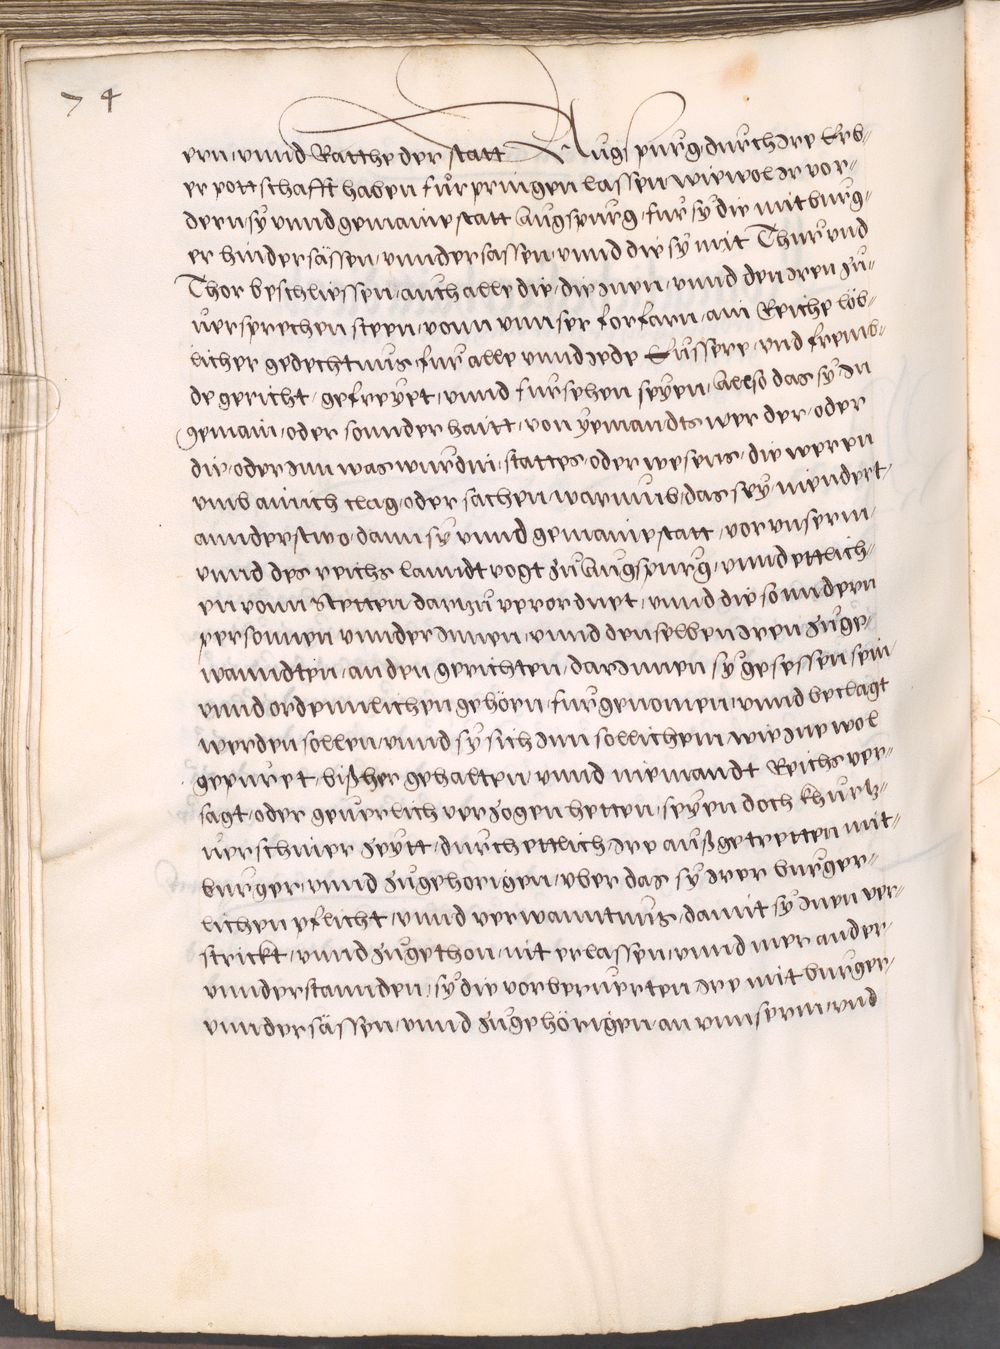 74
ern, vnnd Ratthe der statt Augspurg, durch Ire Erb-
er pottschafft haben fürpringen lassen wiewol Ir vor-
dern sÿ vnnd gemaine statt Augspurg, für sÿ die mitburg-
er hindersässen, vnndersassen, vnnd die sÿ mit Thür vnd
Thor beschliessen, auch alle die, die Inen, vnnd den Iren zu-
uersprechen steen, vonn vnnser forfarn, am Reiche löb-
licher gedechtnus, für alle vnnd Jede Eüssere, vnd fremb-
de gericht, gefreÿet, vnnd fürsehen seÿen, Allso das sÿ In
gemain, oder sonnderhaitt, von ÿemandts wer der, oder
die, oder Inn was wurdin, stattes, oder wesens, die weren
vmb ainich clag, oder sachen, warumb, das seÿ, niendert,
annderstwo, dann sÿ vnnd gemaine statt, vor vnserm,
vnnd des reichs lanndtvogt zu Augspurg, vnnd ettlich-
en vonn Stetten, darzu verordnet, vnnd die sonndern
personnen vnnder Innen, vnnd denselben Iren zuge-
wanndten, an den gerichten, darInnen sÿ gesessen sein,
vnnd ordennlichen gehörn, fürgenomen, vnnd beclagt
werden sollen, vnnd sÿ sich Inn sollichem wie Ine wol
gepüret, bißher gehalten, vnnd niemandt Reichs ver-
sagt, oder geuerlich verzogen hetten, seÿen doch khurtz-
uerschiner zeÿtt, durch ettlich Ire außgetretten mit-
burger, vnnd zugehorigen, vber das sÿ Irer burger-
lichen pflicht, vnnd verwanntnus, damit sÿ Inen ver-
strickt, vnnd zugethon, nit erlassen, vnnd mer ander,
vnnderstannden, sÿ die vorberuerten Ire mitburger,
vndersässen, vnnd zugehörigen, an vnnserm, vnd